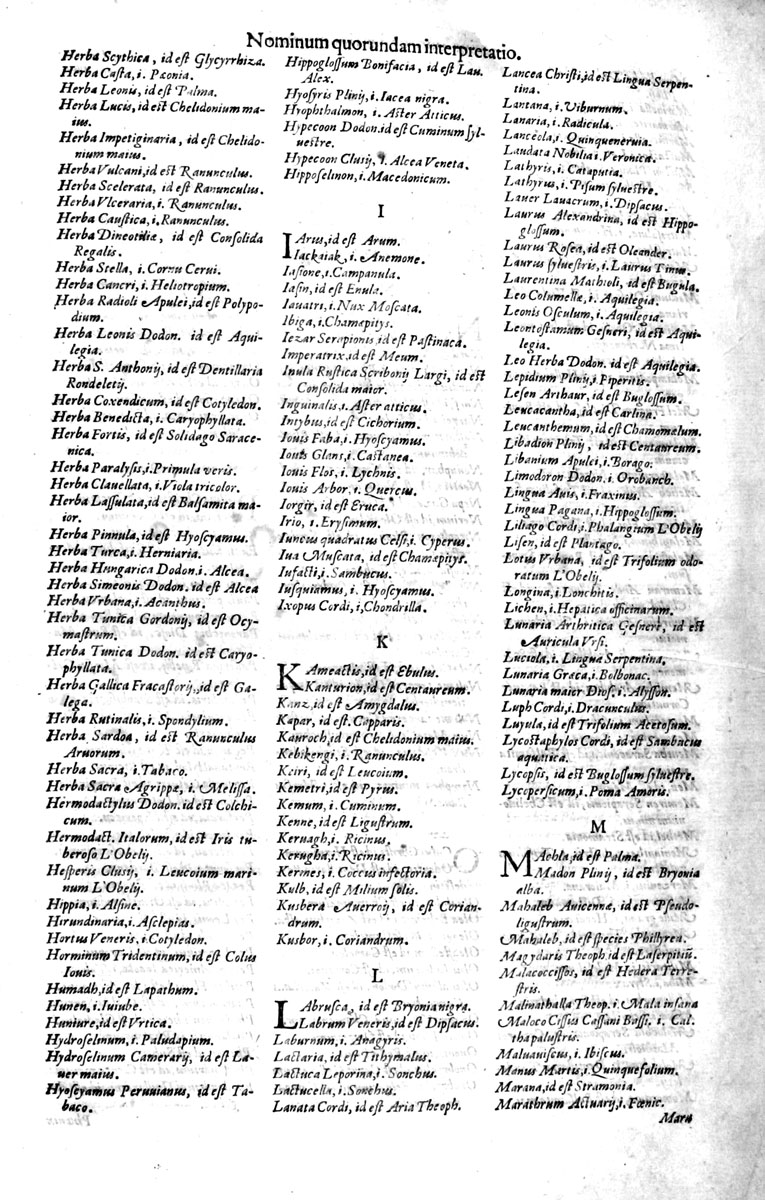 Nominum quorundam interpretatio.
Herba Scythica, id est Glycyrrhiza.
Herba Casta, i. Pæonia.
Herba Leonis, id est Palma.
Herba Lucis, id est Chelidonium ma-
ius.
Herba Impetiginaria, id est Chelido-
nium maius.
Herba Vulcani, id est Ranunculus.
Herba Scelerata, id est Ranunculus.
Herba Vlceraria, i. Ranunculus.
Herba Caustica, i, Ranunculus.
Herba Dineotiliæ, id est Consolida
Regalis.
Herba Stella, i. Cornu Cerui.
Herba Cancri, i. Heliotropium.
Herba Radioli Apulei, id est Polypo-
dium.
Herba Leonis Dodon. id est Aqui-
legia.
Herba S. Anthonij, id est Dentillaria
Rondeletij.
Herba Coxendicum, id est Cotyledon.
Herba Benedicta, i. Caryophyllata.
Herba Fortis, id est Solidago Sarace-
nica.
Herba Paralysis, i. Primula veris.
Herba Clauellata, i. Viola tricolor.
Herba Lassulata, id est Balsamita ma-
ior.
Herba Pinnula, id est Hyoscyamus.
Herba Turca, i. Herniaria.
Herba Hungarica Dodon. i. Alcea.
Herba Simeonis Dodon. id est Alcea
Herba Vrbana, i. Acanthus.
Herba Tunica Gordonij, id est Ocy-
mastrum.
Herba Tunica Dodon. id est Caryo-
phyllata.
Herba Gallica Fracastorij, id est Ga-
lega.
Herba Rutinalis, i. Spondylium.
Herba Sardoa, id est Ranunculus
Aruorum.
Herba Sacra, i. Tabaco.
Herba Sacra Agrippæ, i. Melissa.
Hermodactylus Dodon. id est Colchi-
cum.
Hermodact. Italorum, id est Iris tu-
berosa L'Obelij.
Hesperis Clusij, i. Leucoium mari-
num L'Obelij.
Hippia, i. Alsine.
Hirundinaria, i. Asclepias.
Hortus Veneris, i. Cotyledon.
Horminum Tridentinum, id est Colus
Iouis.
Humadh, id est Lapathum.
Hunen, i. Iuiube.
Huniure, id est Vrtica.
Hydroselinum, i. Paludapium.
Hydroselinum Camerarij, id est La-
uer maius.
Hyoscyamus Peruuianus, id est Ta-
baco.
Hippoglossum Bonifacia, id est Lau.
Alex.
Hyosyris Plinij, i. Iacea nigra.
Hyophthalmon, i. Aster Atticus.
Hypecoon Dodon. id est Cuminum syl-
uestre.
Hypecoon Clusij, i. Alcea Veneta.
Hipposelinon, i. Macedonicum.
I
IArus, id est Arum.
Iackaiak, i. Anemone.
Iasione, i. Campanula.
Iasin, id est Enula.
Iauatri, i. Nux Moscata.
Ibiga, i. Chamæpitys.
Iezar Serapionis, id est Pastinaca.
Imperatrix, id est Meum.
Inula Rustica Scribonij Largi, id est
Consolida maior.
Inguinalis, i. Aster atticus.
Intybus, id est Cichorium.
Iouis Faba, i. Hyoscyamus.
Iouis Glans, i. Castanea.
Iouis Flos, i. Lychnis.
Iouis Arbor, i. Quercus.
Iorgir, id est Eruca.
Irio, i. Erysimum.
Iuncus quadratus Celsi, i. Cyperus.
Iua Muscata, id est Chamæpitys.
Iufacti, i. Sambucus.
Iusquiamus, i. Hyoscyamus.
Ixopus Cordi, i, Chondrilla.
K
KAmeactis, id est Ebulus.
Kanturion, id est Centaureum.
Kanz, id est Amygdalus.
Kapar, id est Capparis.
Kauroch, id est Chelidonium maius.
Kebikengi, i. Ranunculus.
Keiri, id est Leucoium.
Kemetri, id est Pyrus.
Kemum, i. Cuminum.
Kenne, id est Ligustrum.
Keruagh, i. Ricinus.
Kerugha, i. Ricinus.
Kermes, i. Coccus infectoria.
Kulb, id est Milium solis.
Kusbera Auerroij, id est Corian-
drum.
Kusbor, i. Coriandrum.
L
LAbrusca, id est Bryonia nigra.
Labrum Veneris, id est Dipsacus.
Laburnum, i. Anagyris.
Lactaria, id est Tithymalus.
Lactuca Leporina, i. Sonchus.
Lactucella, i. Sonchus.
Lanata Cordi, id est Aria Theoph.
Lancea Christi, id est Lingua Serpen-
tina.
Lantana, i. Viburnum.
Lanaria, i. Radicula.
Lanceola, i. Quinqueneruia.
Laudata Nobilia i. Veronica.
Lathyris, i. Cataputia.
Lathyrus, i. Pisum syluestre.
Lauer Lauacrum, i. Dipsacus.
Laurus Alexandrina, id est Hippo-
glossum.
Laurus Rosea, id est Oleander.
Laurus syluestris, i. Laurus Tinus.
Laurentina Mathioli, id est Bugula.
Leo Columellæ, i. Aquilegia.
Leonis Osculum, i. Aquilegia.
Leontostamum Gesneri, id est Aqui-
legia.
Leo Herba Dodon. id est Aquilegia.
Lepidium Plinij, i. Piperitis.
Lesen Arthaur, id est Buglossum.
Leucacantha, id est Carlina.
Leucanthemum, id est Chamomælum.
Libadion Plinij, id est Centaureum.
Libanium Apulei, i. Borago.
Limodoron Dodon. i. Orobanch.
Lingua Auis, i. Fraxinus.
Lingua Pagana, i. Hippoglossum.
Liliago Cordi, i. Phalangium L'Obelij
Lisen, id est Plantago.
Lotus Vrbana, id est Trifolium odo-
ratum L'Obelij.
Longina, i. Lonchitis.
Lichen, i. Hepatica officinarum.
Lunaria Arthritica Gesneri, id est
Auricula Vrsi.
Luciola, i. Lingua Serpentina.
Lunaria Græca, i. Bolbonac.
Lunaria maier Dios. i. Alysson.
Luph Cordi, i. Dracunculus.
Luyula, id est Trifolium Acetosum.
Lycostaphylos Cordi, id est Sambucus
aquatica.
Lycopsis, id est Buglossum syluestre.
Lycopersicum, i. Poma Amoris.
M
MAchla, id est Palma.
Madon Plinij, id est Bryonia
alba.
Mahaleb Auicennæ, id est Pseudo-
ligustrum.
Mahaleb, id est species Phillyrea.
Magydaris Theoph. id est Laserpitiū.
Malacocissos, id est Hedera Terre-
stris.
Malinathalla Theop. i. Mala insana
Maloco Cissus Cassani Bassi, i. Cal-
tha palustris.
Maluauiscus, i. Ibiscus.
Manus Martis, i. Quinquefolium.
Marana, id est Stramonia.
Marathrum Actuarij, i. Fœnic.
Mara